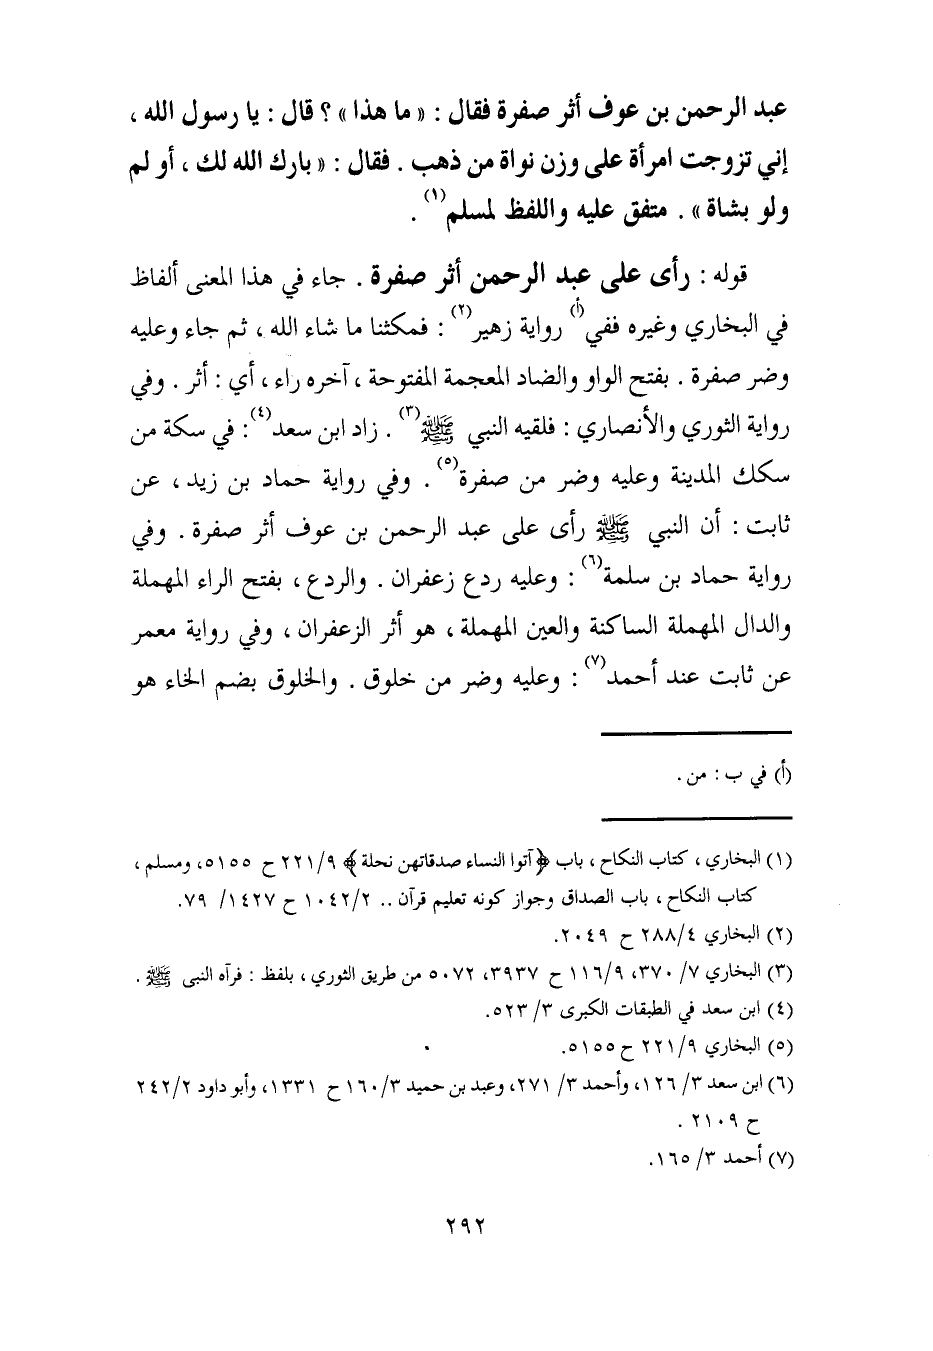 عبد الرحمن بن عوف أثر صفرة فقال : « ما هذا » ؟ قال : يا رسول الله ،
إني تزوجت امرأة على وزن نواة من ذهب . فقال : « بارك الله لك ، أو لم
ولو بشاة » . متفق عليه واللفظ لمسلم(١) .
قوله : رأى على عبد الرحمن أثر صفرة . جاء في هذا المعنى ألفاظ
في البخاري وغيره ففي(أ) رواية زهير(٢) : فمكثنا ما شاء الله ، ثم جاء وعليه
وضر صفرة . بفتح الواو والضاد المعجمة المفتوحة ، آخره راء ، أي : أثر . وفي
رواية الثوري والأنصاري : فلقيه النبي ﷺ(٣) . زاد ابن سعد(٤) : في سكة من
سكك المدينة وعليه وضر من صفرة(٥) . وفي رواية حماد بن زيد ، عن
ثابت : أن النبي ﷺ رأى على عبد الرحمن بن عوف أثر صفرة . وفي
رواية حماد بن سلمة(٦) : وعليه ردع زعفران . والردع ، بفتح الراء المهملة
والدال المهملة الساكنة والعين المهملة ، هو أثر الزعفران ، وفي رواية معمر
عن ثابت عند أحمد(٧) : وعليه وضر من خلوق . والخلوق بضم الخاء هو
(أ) في ب : من .
(١) البخاري ، كتاب النكاح ، باب ﴿آتوا النساء صدقاتهن نحلة﴾ ٢٢١/٩ ح ٥١٥٥، ومسلم ،
كتاب النكاح ، باب الصداق وجواز كونه تعليم قرآن .. ١٠٤٢/٢ ح ١٤٢٧/ ٧٩.
(٢) البخاري ٢٨٨/٤ ح ٢٠٤٩.
(٣) البخاري ٧/ ٣٧٠، ١١٦/٩ ح ٣٩٣٧، ٥٠٧٢ من طريق الثوري ، بلفظ : فرآه النبى ﷺ .
(٤) ابن سعد في الطبقات الكبرى ٣/ ٥٢٣.
(٥) البخاري ٢٢١/٩ ح ٥١٥٥.
(٦) ابن سعد ٣/ ١٢٦، وأحمد ٣/ ٢٧١، وعبد بن حميد ١٦٠/٣ ح ١٣٣١، وأبو داود ٢٤٢/٢
ح ٢١٠٩ .
(٧) أحمد ٣/ ١٦٥.
٢٩٢